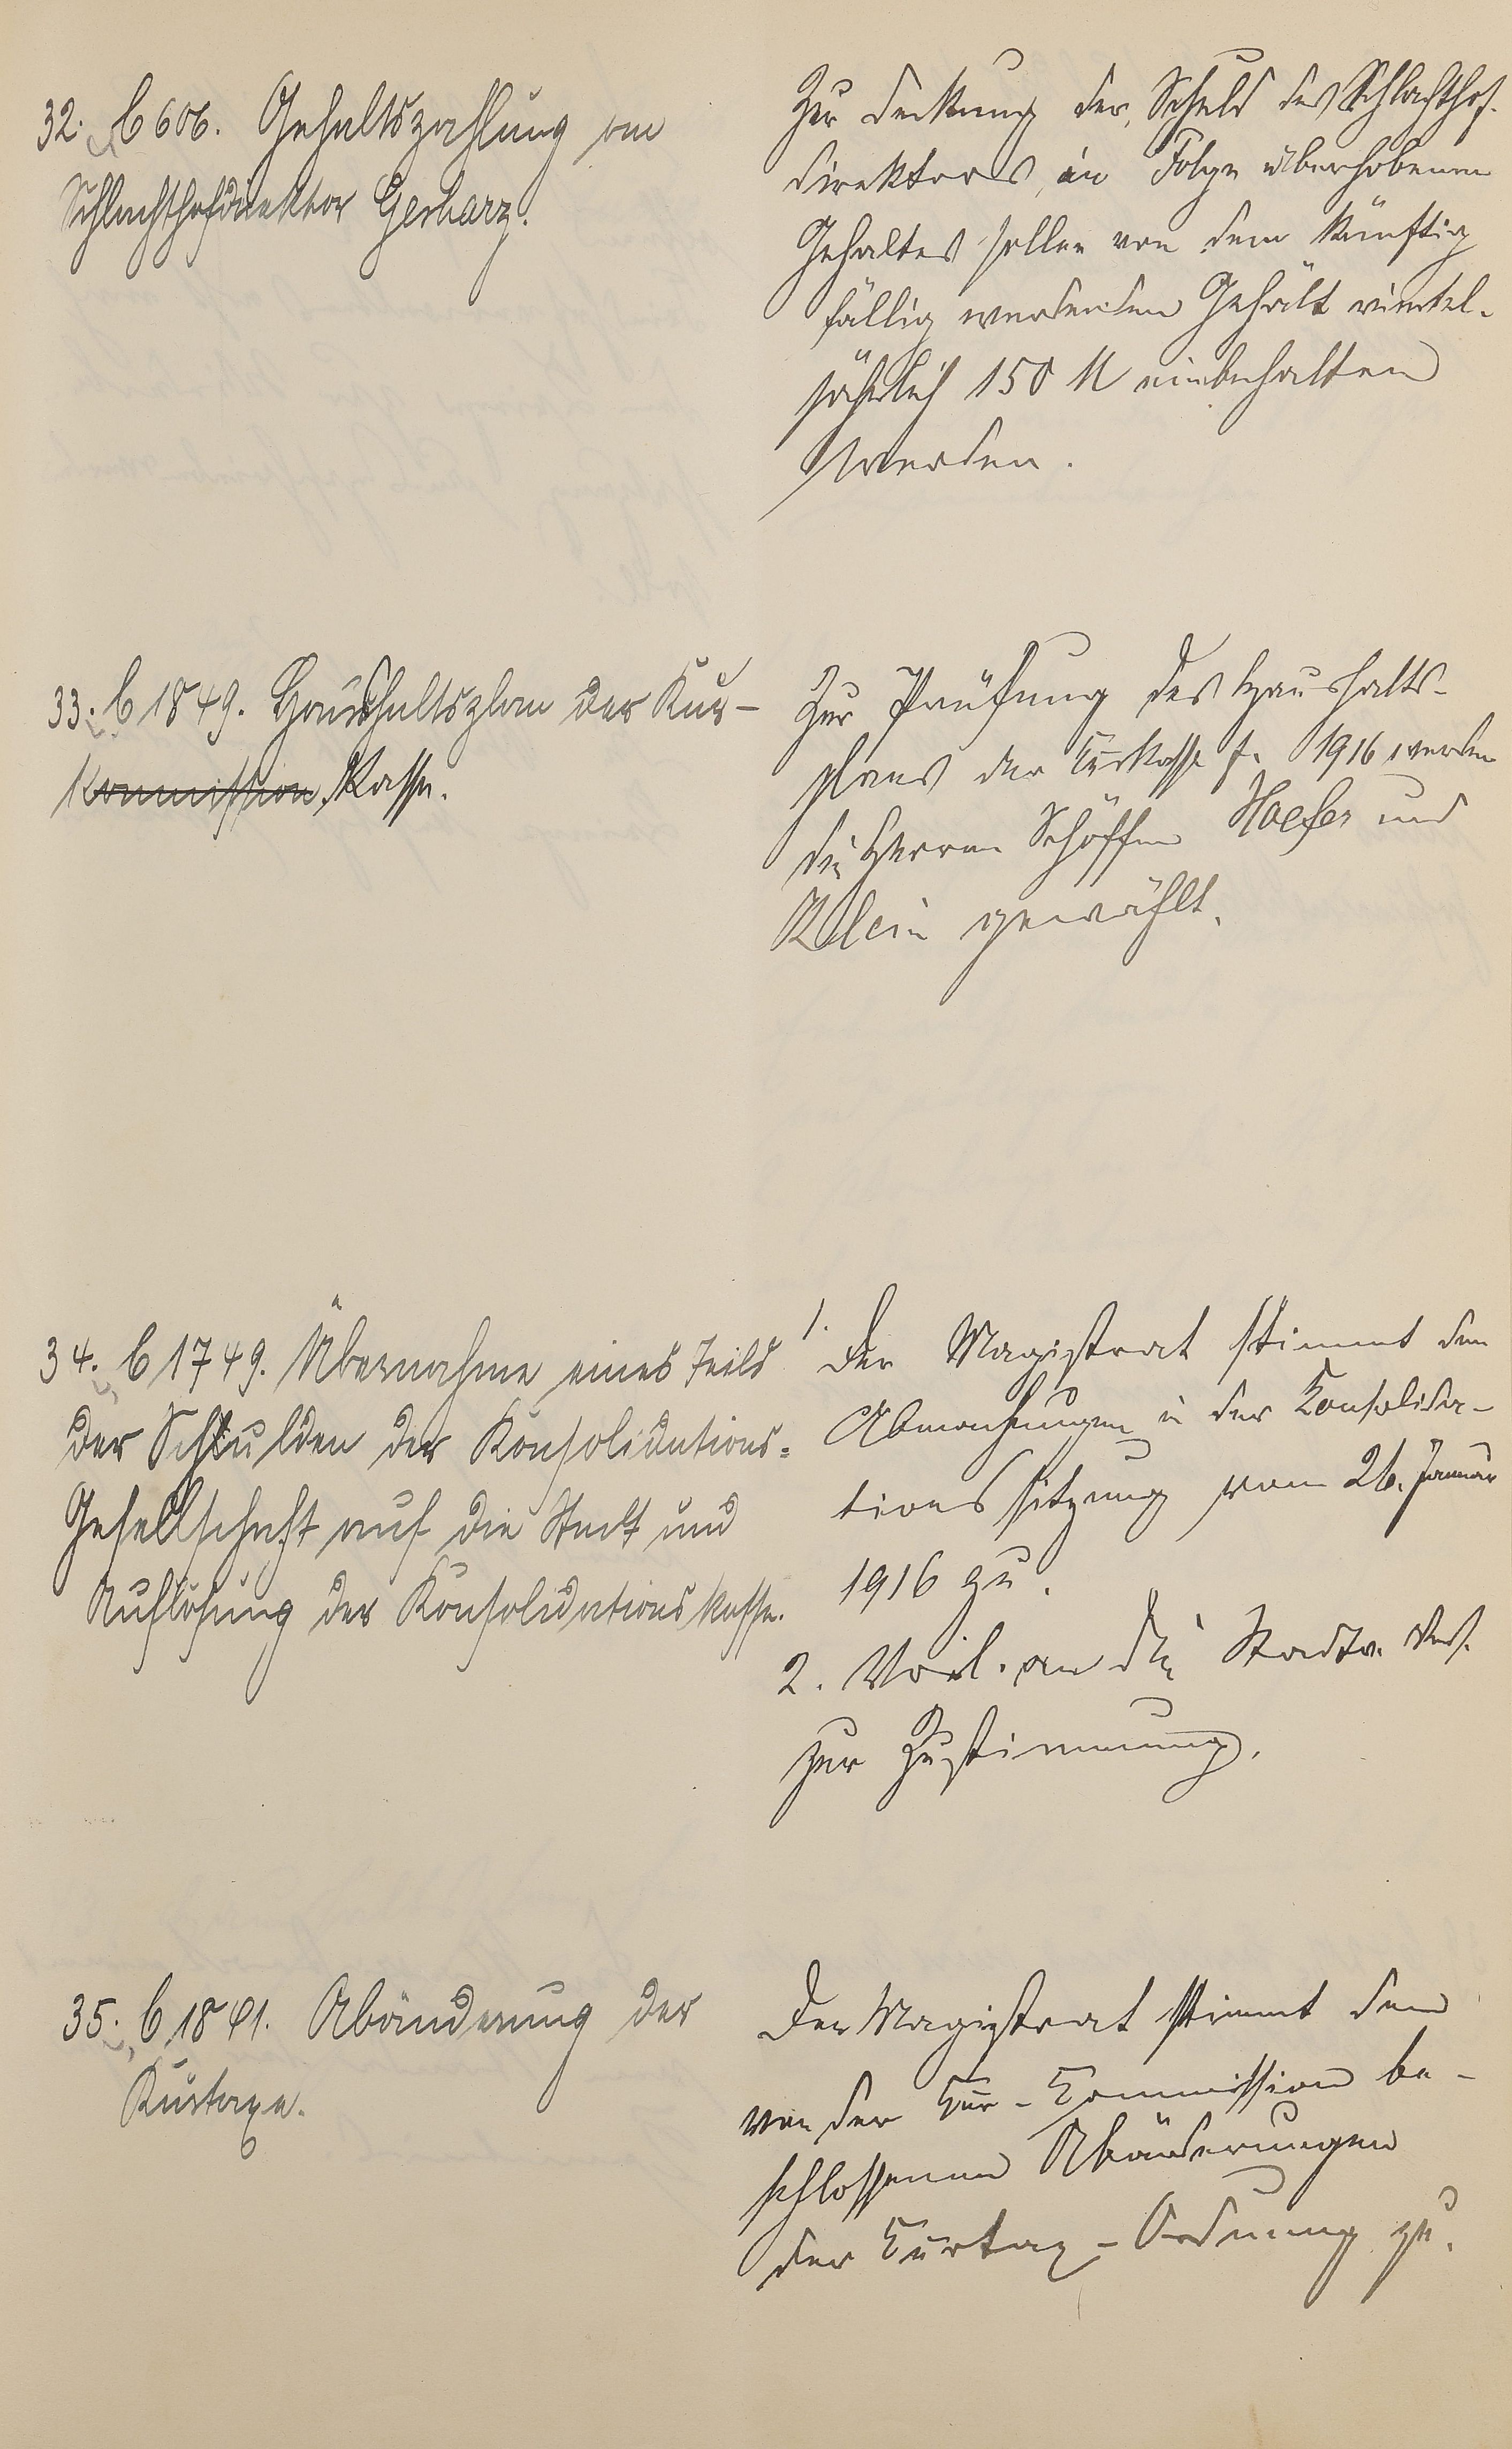 32. C 606. Gehaltszahlung an
Schlachthofdirektor Gerharz.
Zur Deckung der Schuld des Schlachthof-
direktors in Folge überhobenen
Gehaltes sollen von dem künftig
fällig werdenden Gehalt viertel-
jährlich 150 M einbehalten
werden.
33. C 1849. Haushaltsplan der Kur-
kommission. Kasse.
Zur Prüfung des Haushalts-
planes der Kurkasse f. 1916 werden
die Herren Schöffen Hoefer und
Klein gewählt.
34. C 1749. Übernahme eines Teils
der Schulden der Konsolidations-
Gesellschaft auf die Stadt und
Auflösung der Konsolidationskasse.
1. Der Magistrat stimmt den
Abmachungen in der Konsolida-
tionssitzung vom 26. Januar
1916 zu.
2. Vorl. an die Stadtv. Vers.
zur Zustimmung.
35. C 1841. Abänderung der
Kurtaxe.
Der Magistrat stimmt den
von der Kur-Kommission be-
schlossenen Abänderungen
der Kurtax-Ordnung zu.